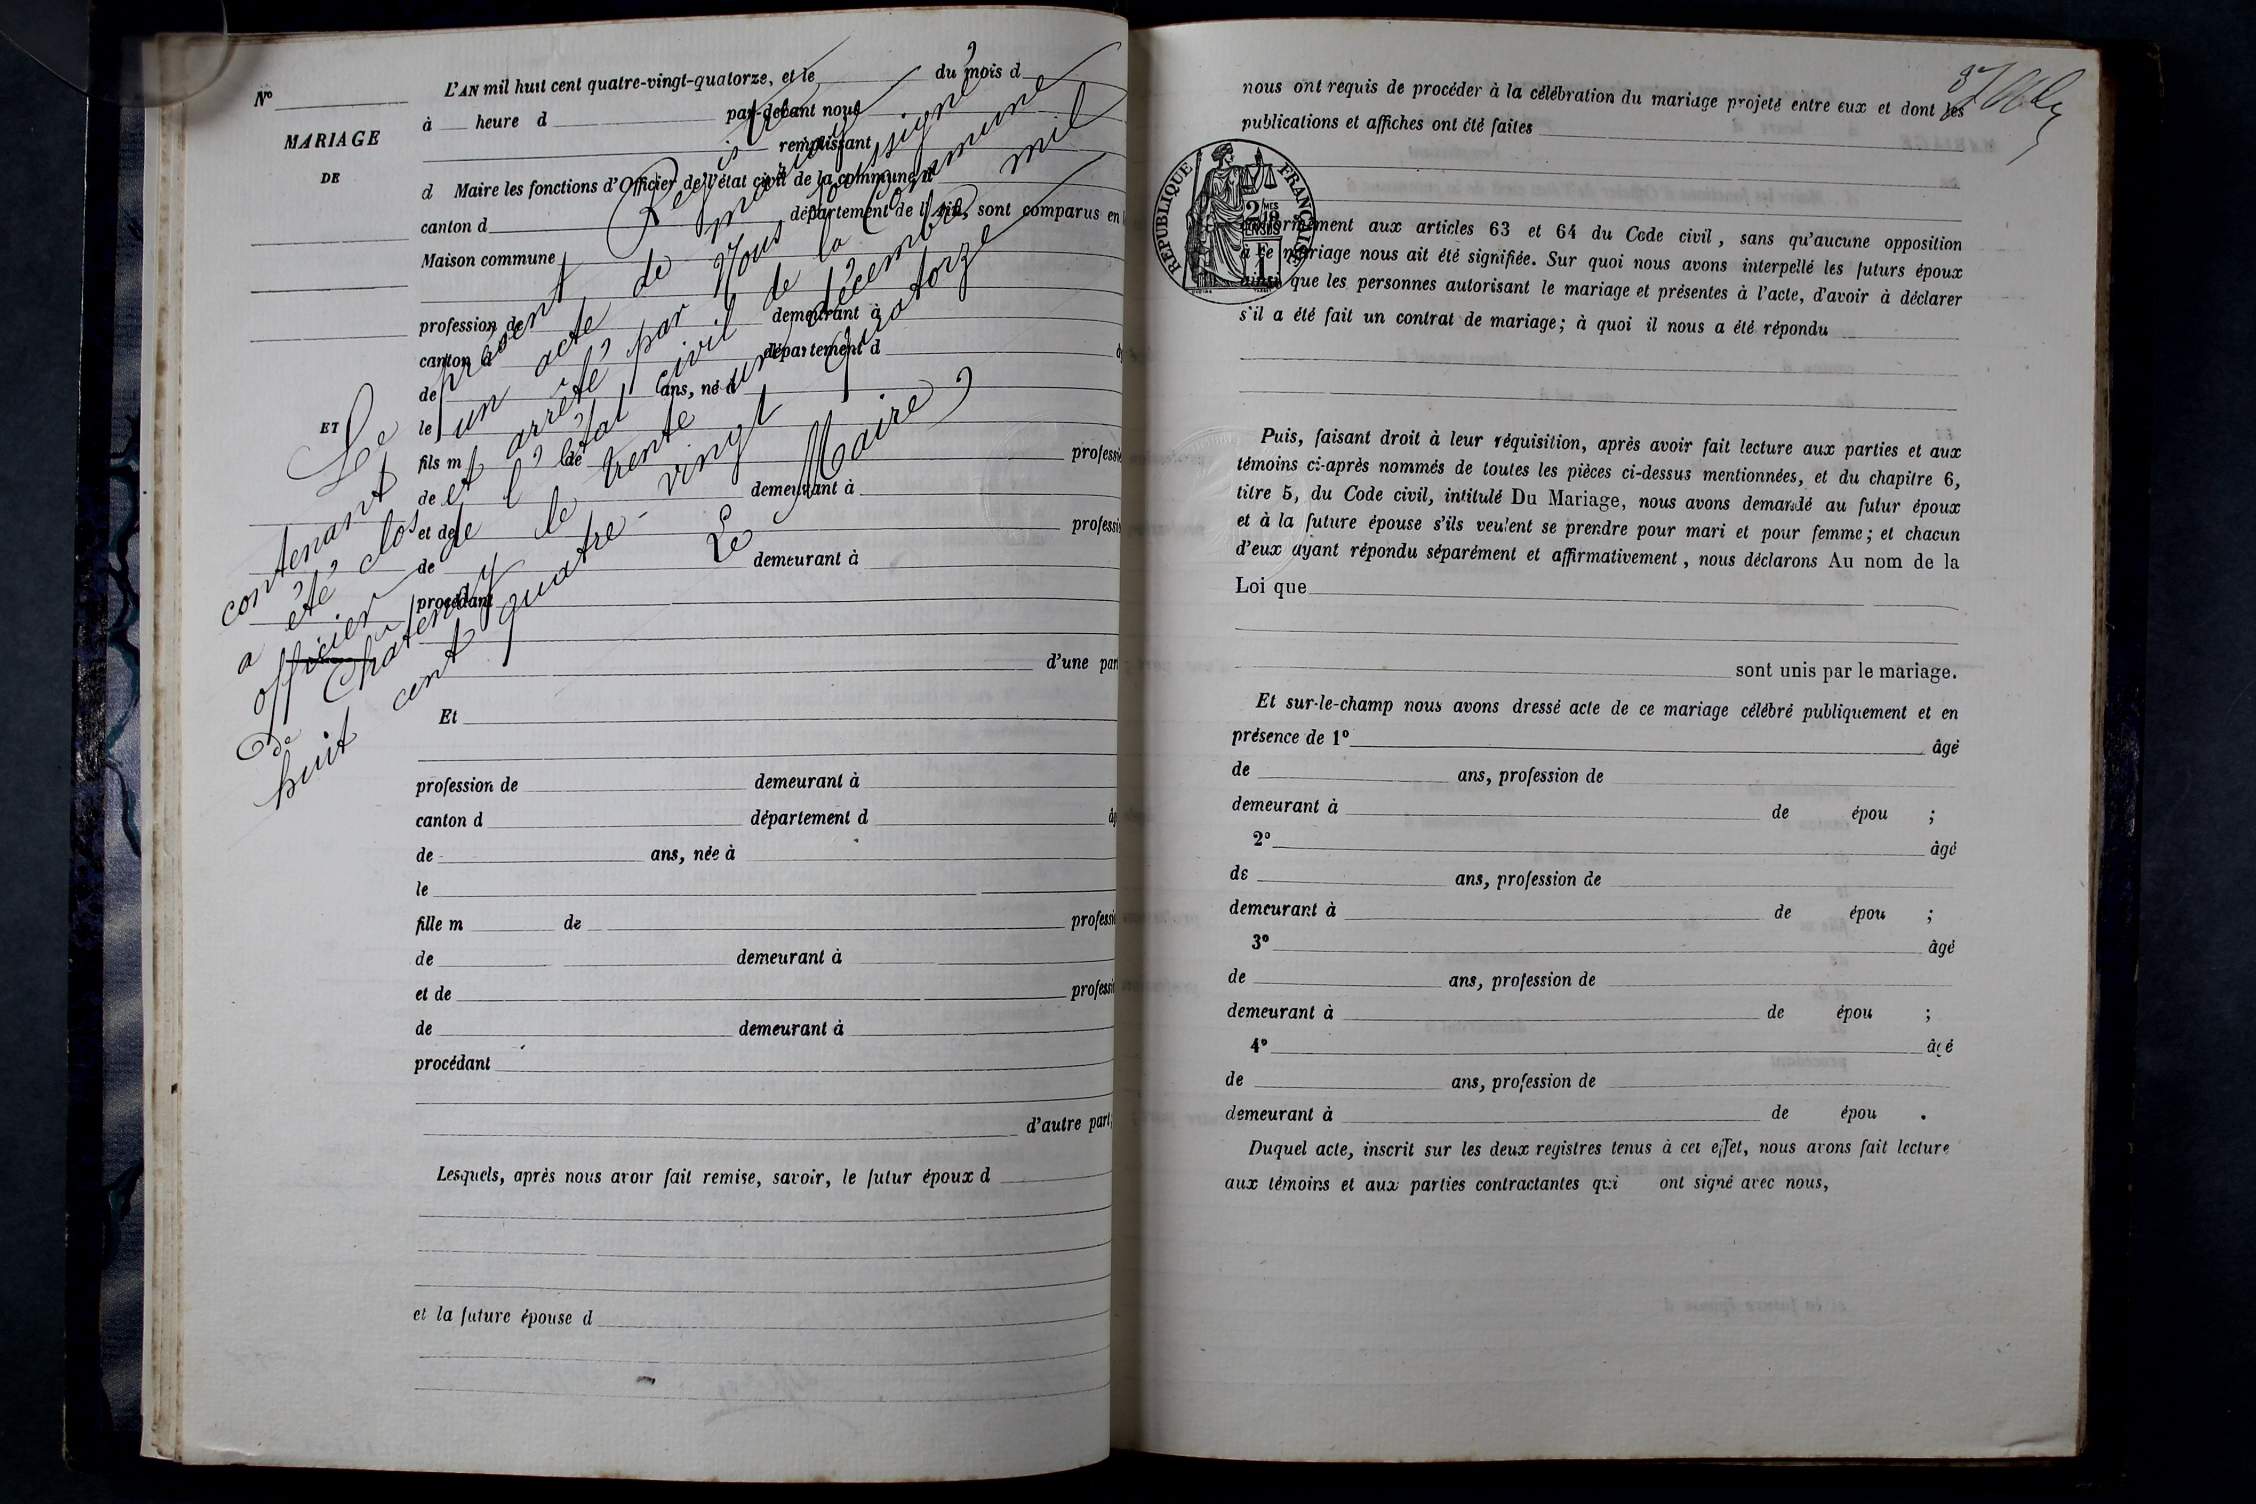 N°
MARIAGE
DE
ET
L'AN mil huit cent quatre-vingt-quatorze, et le du mois d
à heure d par-devant nous
remplissant
d Maire les fonctions d'Officier de l'état civil de la commune d
canton d département de l' sont comparus en
Maison commune
profession de demeurant à
canton d département d
de ans, né d
le
fils m de professi
de demeurant à
et de professi
de demeurant à
procédant
d'une par
Et
profession de demeurant à
canton d département d âg
de ans, née à
le
fille m de professi
de demeurant à
et de professi
de demeurant à
procédant
d'autre part;
Lesquels, après nous avoir fait remise, savoir, le futur époux d
et la future épouse d
Le présent Registre
contenant un acte de mariage
a été clos et arrêté par Nous soussigné
officier de l'état civil de la Commune
de Châtenay le trente un décembre mil
huit cent quatre-vingt quatorze
Le Maire,
nous ont requis de procéder à la célébration du mariage projeté entre eux et dont les
publications et affiches ont été faites
RÉPUBLIQUE FRANÇAISE
conformément aux articles 63 et 64 du Code civil, sans qu'aucune opposition
à ce mariage nous ait été signifiée. Sur quoi nous avons interpellé les futurs époux
ainsi que les personnes autorisant le mariage et présentes à l'acte, d'avoir à déclarer
s'il a été fait un contrat de mariage; à quoi il nous a été répondu
Puis, faisant droit à leur réquisition, après avoir fait lecture aux parties et aux
témoins ci-après nommés de toutes les pièces ci-dessus mentionnées, et du chapitre 6,
titre 5, du Code civil, intitulé Du Mariage, nous avons demandé au futur époux
et à la future épouse s'ils veulent se prendre pour mari et pour femme; et chacun
d'eux ayant répondu séparément et affirmativement, nous déclarons Au nom de la
Loi que
sont unis par le mariage.
Et sur-le-champ nous avons dressé acte de ce mariage célébré publiquement et en
présence de 1° âgé
de ans, profession de
demeurant à de épou ;
2° âgé
de ans, profession de
demeurant à de épou ;
3° âgé
de ans, profession de
demeurant à de épou ;
4° âgé
de ans, profession de
demeurant à de épou .
Duquel acte, inscrit sur les deux registres tenus à cet effet, nous avons fait lecture
aux témoins et aux parties contractantes qui ont signé avec nous,